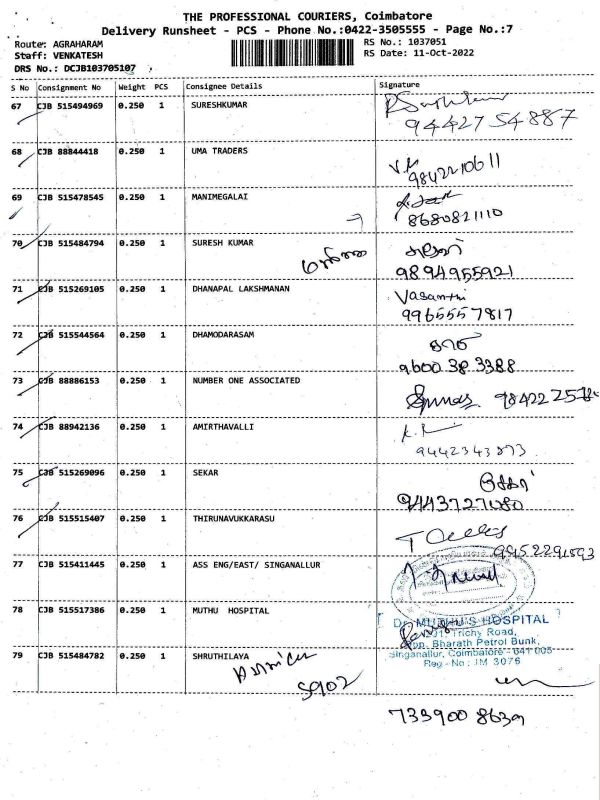 THE PROFESSIONAL COURIERS, Coimbatore
Delivery Runsheet - PCS - Phone No.:0422-3505555 - Page No.:7
Route: AGRAHARAM
RS No.: 1037051
Staff: VENKATESH
RS Date: 11-Oct-2022
DRS No.: DCJB103705107
S No Consignment No Weight PCS Consignee Details Signature
67 CJB 515494969 0.250 1 SURESHKUMAR
94427 54887
68 CJB 88844418 0.250 1 UMA TRADERS
9842210611
69 CJB 515478545 0.250 1 MANIMEGALAI
8680821110
70 CJB 515484794 0.250 1 SURESH KUMAR
9894955921
71 CJB 515269105 0.250 1 DHANAPAL LAKSHMANAN Vasanthi
9965557817
72 CJB 515544564 0.250 1 DHAMODARASAM
9600 38 3388
73 CJB 88886153 0.250 1 NUMBER ONE ASSOCIATED
74 CJB 88942136 0.250 1 AMIRTHAVALLI
9442343873
75 CJB 515269096 0.250 1 SEKAR சேகர்
9443727080
76 CJB 515515407 0.250 1 THIRUNAVUKKARASU
77 CJB 515411445 0.250 1 ASS ENG/EAST/ SINGANALLUR
78 CJB 515517386 0.250 1 MUTHU HOSPITAL
Dr. MUTHU'S HOSPITAL
Trichy Road,
Opp. Bharath Petrol Bunk,
Singanallur, Coimbatore - 641 005
Reg - No : IM 3076
79 CJB 515484782 0.250 1 SHRUTHILAYA
S902
733900 8639